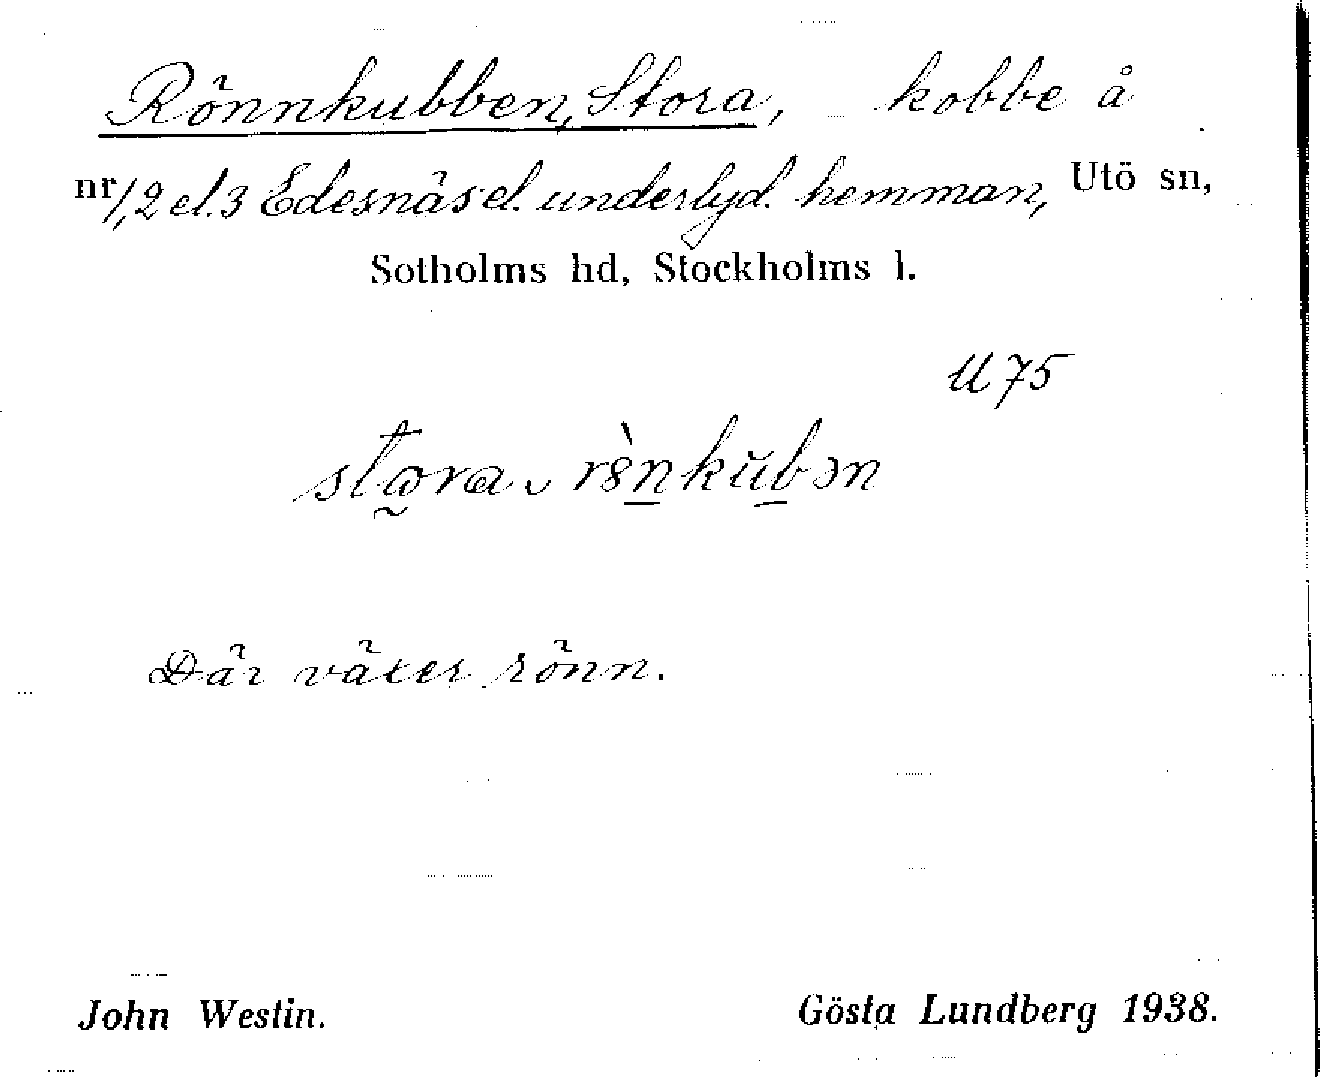 Rönnkubben, Stora, kobbe å
nr 1, 2 el. 3 Edesnäs el. underlyd. hemman, Utö sn,
Sotholms hd, Stockholms l.
U 75
Där växer rönn.
John Westin. Gösta Lundberg 1938.